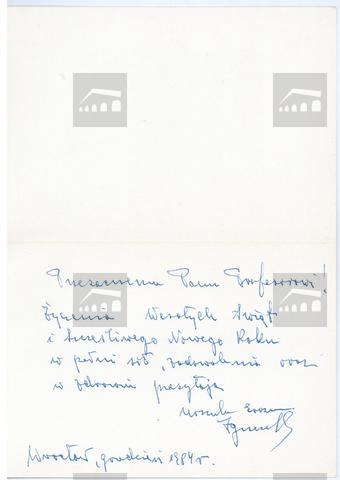 Przezacnemu Panu Profesorowi!
Życzenia Wesołych Świąt
i Szczęśliwego Nowego Roku
w pełni sił, zadowolenia oraz
w zdrowiu przesyłają
Urszula
Wrocław, grudzień 1984 r.